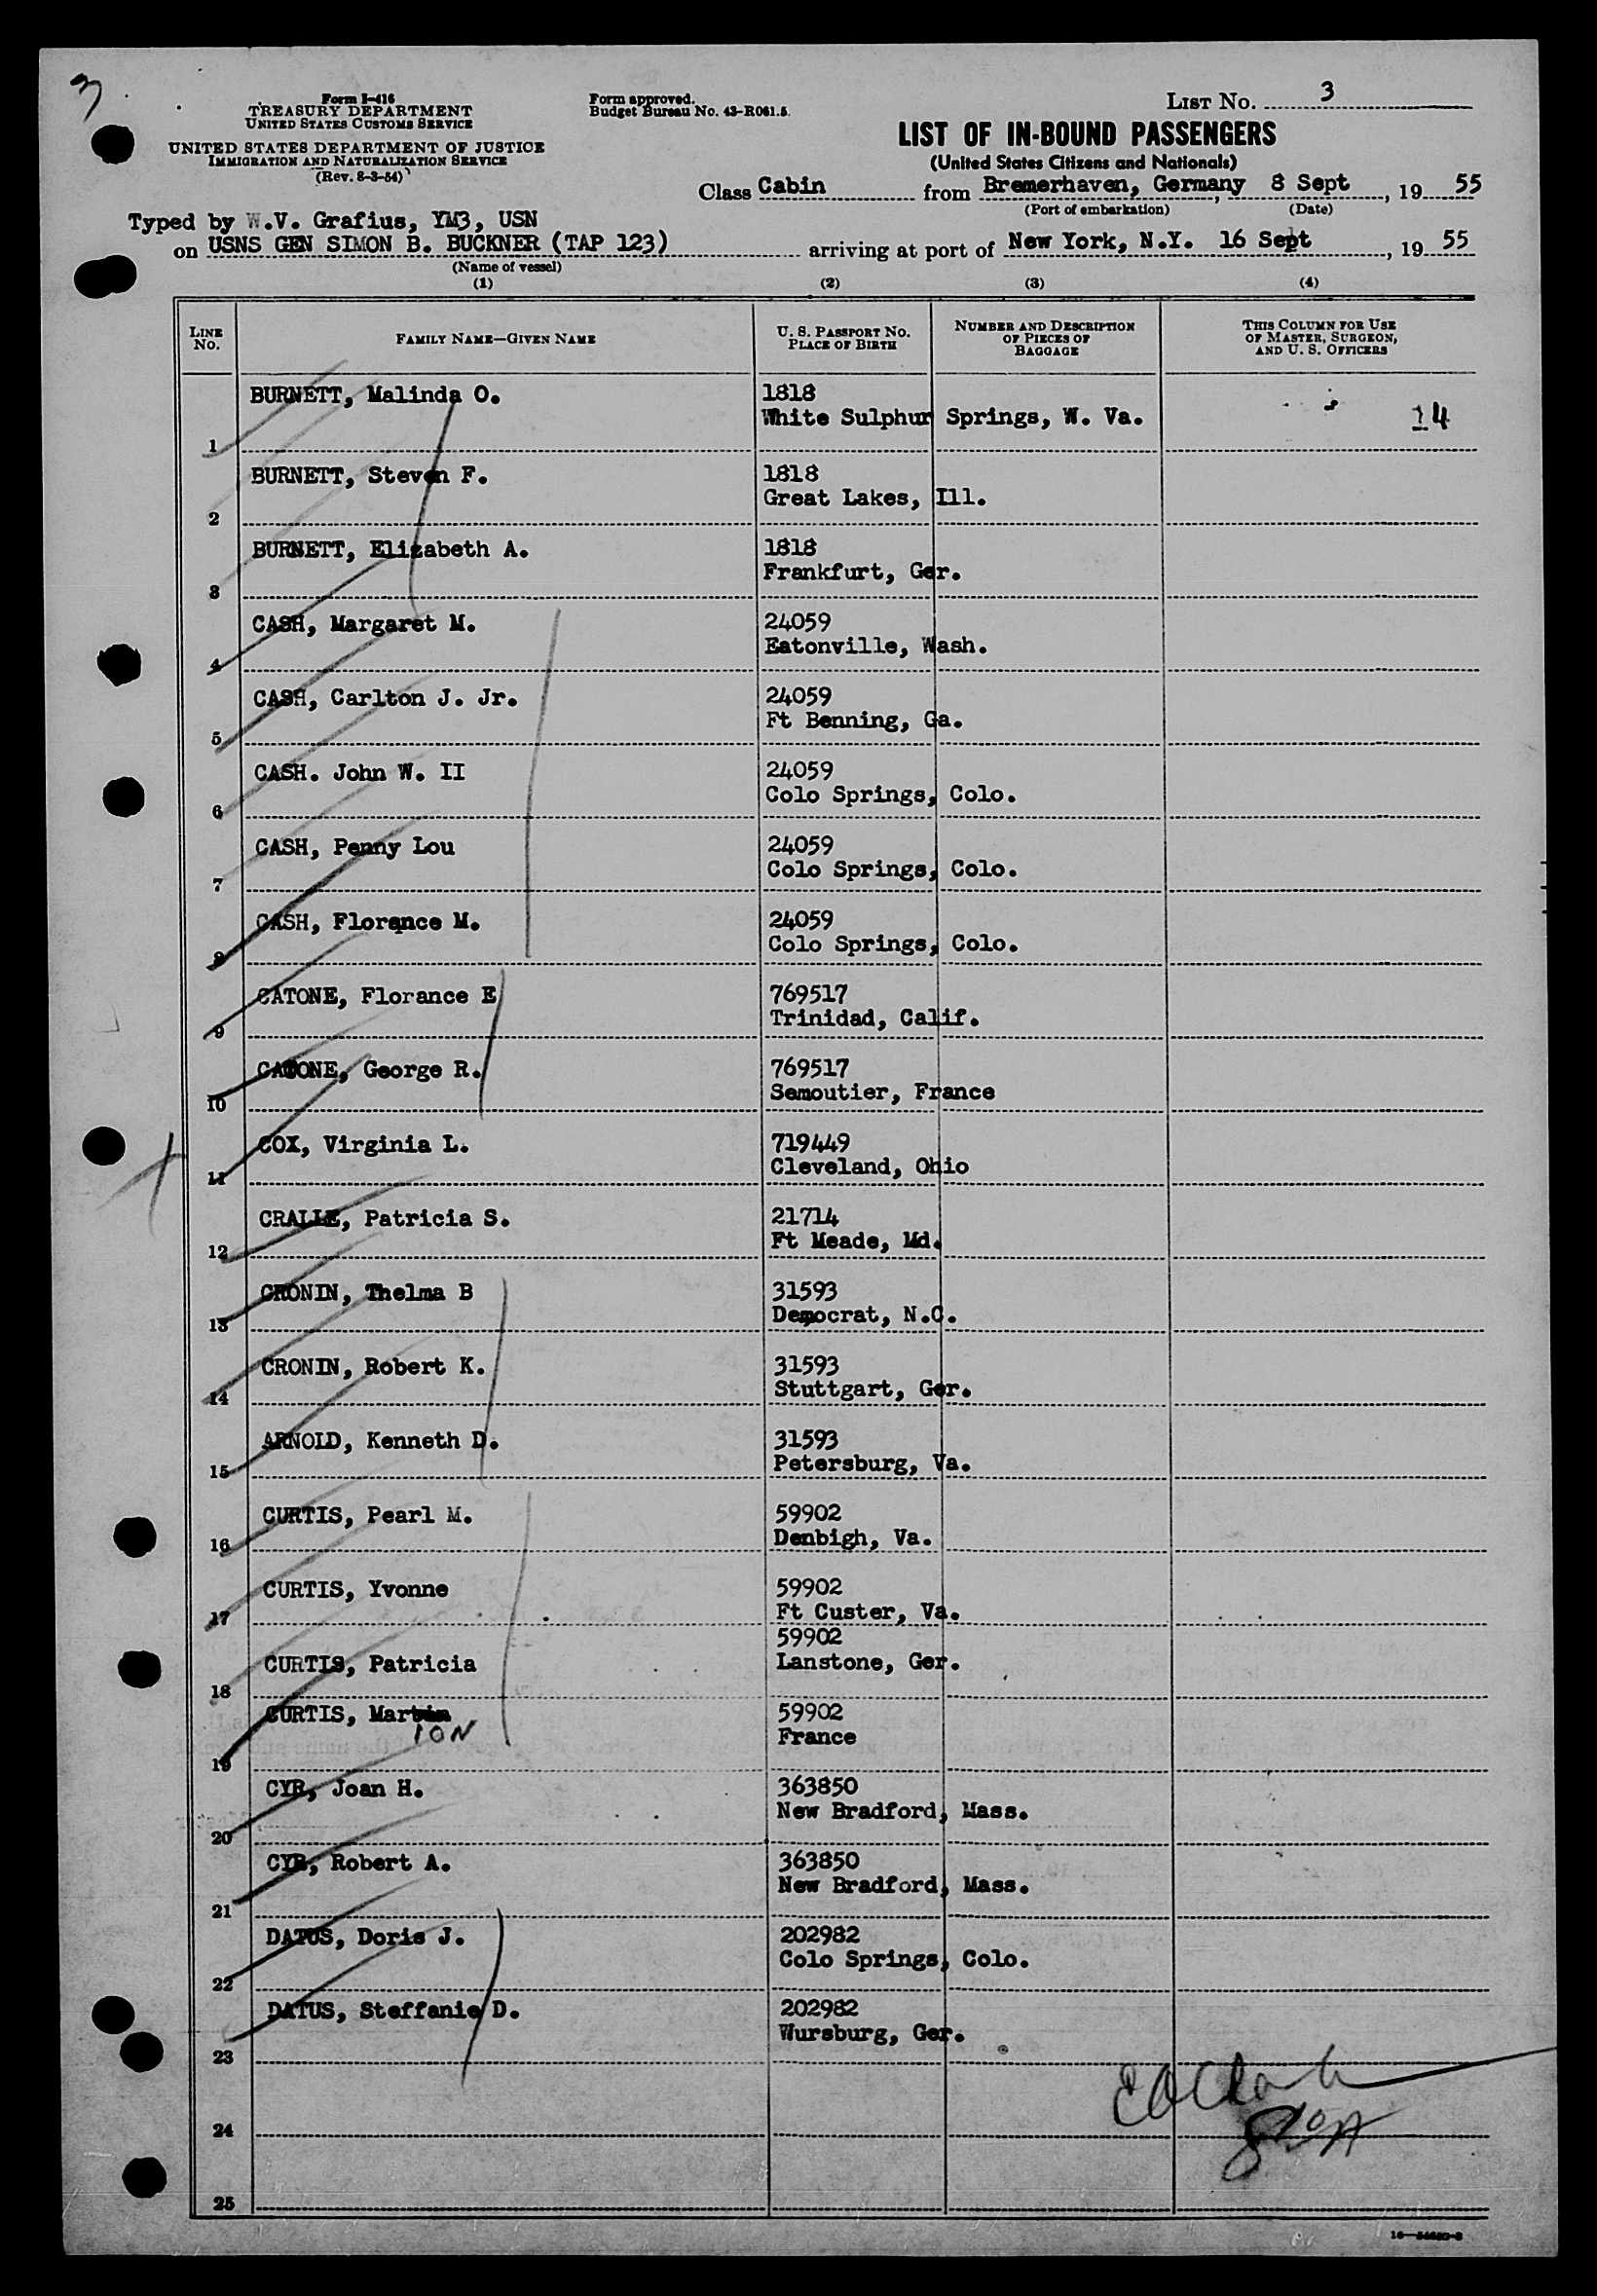 3
Form I-416
TREASURY DEPARTMENT
UNITED STATES CUSTOMS SERVICE
UNITED STATES DEPARTMENT OF JUSTICE
IMMIGRATION AND NATURALIZATION SERVICE
(Rev. 8-3-54)
Form approved.
Budget Bureau No. 43-R061.5.
LIST NO. 3
LIST OF IN-BOUND PASSENGERS
(United States Citizens and Nationals)
Class Cabin from Bremerhaven, Germany, 8 Sept, 1955
(Port of embarkation) (Date)
Typed by W.V. Grafius, YM3, USN
on USNS GEN SIMON B. BUCKNER (TAP 123) arriving at port of New York, N.Y. 16 Sept, 1955
(Name of vessel)
(1) (2) (3) (4)
LINE NO. FAMILY NAME—GIVEN NAME U. S. PASSPORT NO. PLACE OF BIRTH NUMBER AND DESCRIPTION OF PIECES OF BAGGAGE THIS COLUMN FOR USE OF MASTER, SURGEON, AND U. S. OFFICERS
BURNETT, Malinda O. 1818
1 White Sulphur Springs, W. Va.
BURNETT, Steven F. 1818
2 Great Lakes, Ill.
BURNETT, Elizabeth A. 1818
3 Frankfurt, Ger.
CASH, Margaret M. 24059
4 Eatonville, Wash.
CASH, Carlton J. Jr. 24059
5 Ft Benning, Ga.
CASH. John W. II 24059
6 Colo Springs, Colo.
CASH, Penny Lou 24059
7 Colo Springs, Colo.
CASH, Florance M. 24059
8 Colo Springs, Colo.
CATONE, Florance E 769517
9 Trinidad, Calif.
CATONE, George R. 769517
10 Semoutier, France
COX, Virginia L. 719449
11 Cleveland, Ohio
CRALLE, Patricia S. 21714
12 Ft Meade, Md.
CRONIN, Thelma B 31593
13 Democrat, N.C.
CRONIN, Robert K. 31593
14 Stuttgart, Ger.
ARNOLD, Kenneth D. 31593
15 Petersburg, Va.
CURTIS, Pearl M. 59902
16 Denbigh, Va.
CURTIS, Yvonne 59902
17 Ft Custer, Va.
59902
CURTIS, Patricia Lanstone, Ger.
18
CURTIS, Marvin 59902
ION France
19
CYR, Joan H. 363850
20 New Bradford, Mass.
CYR, Robert A. 363850
21 New Bradford, Mass.
DATUS, Doris J. 202982
22 Colo Springs, Colo.
DATUS, Steffanie D. 202982
23 Wursburg, Ger.
24
25